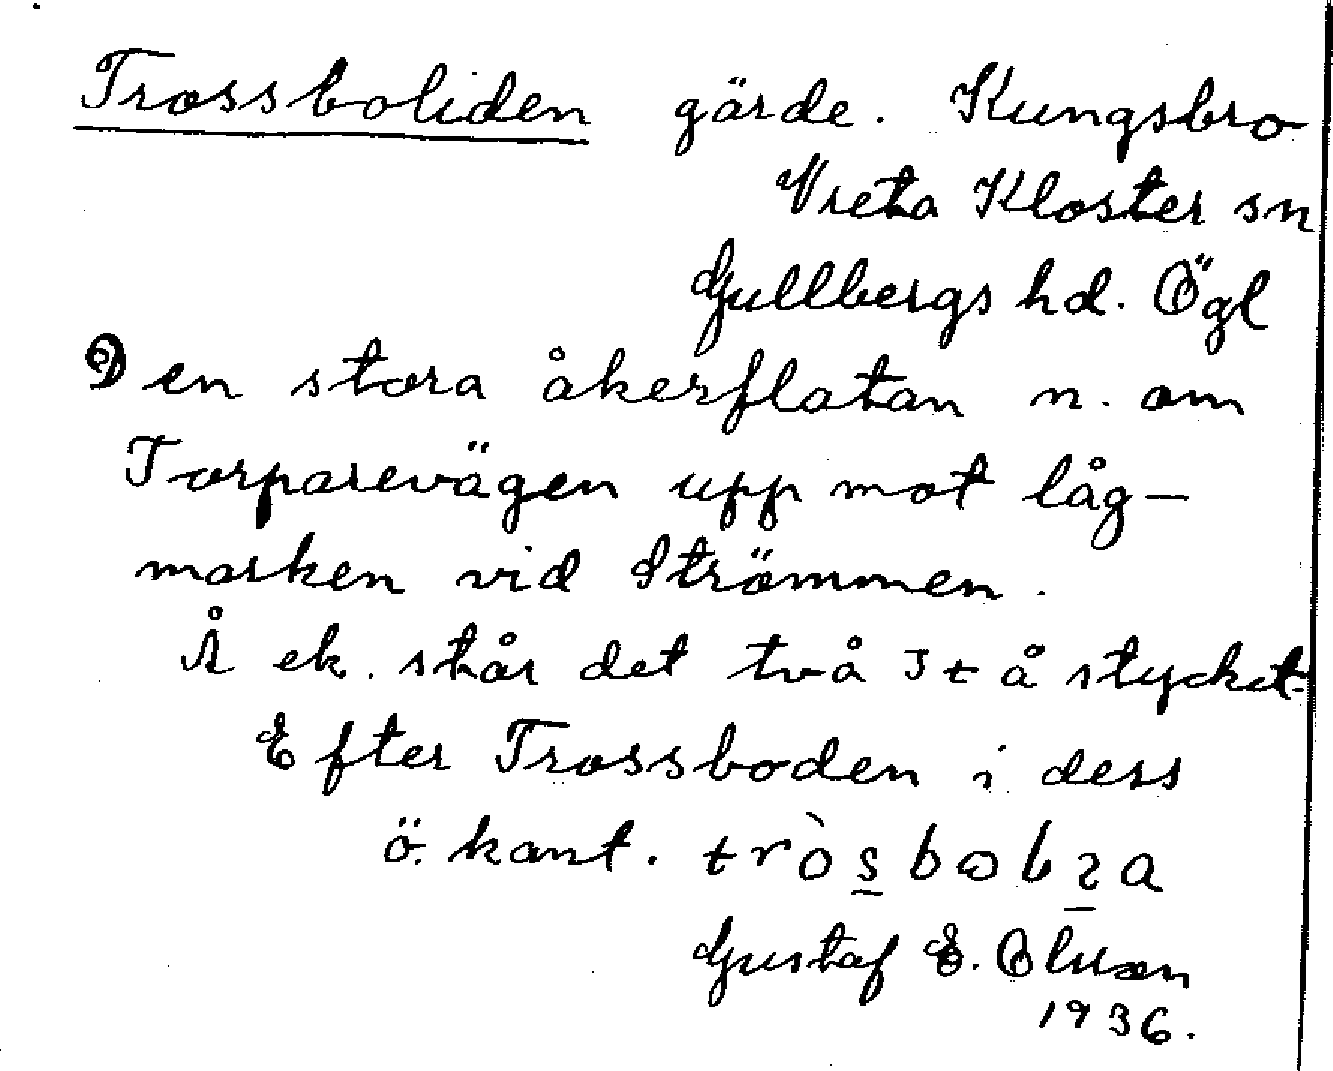 Trossboliden gärde. Kungsbro
Vreta Kloster sn
Gullbergs hd. Ögl
Den stora åkerflatan n. om
Torparevägen upp mot låg-
marken vid Strömmen.
Å ek. står det två st å stycket.
Efter Trossboden i dess
ö. kant.
Gustaf E. Olsson
1936.